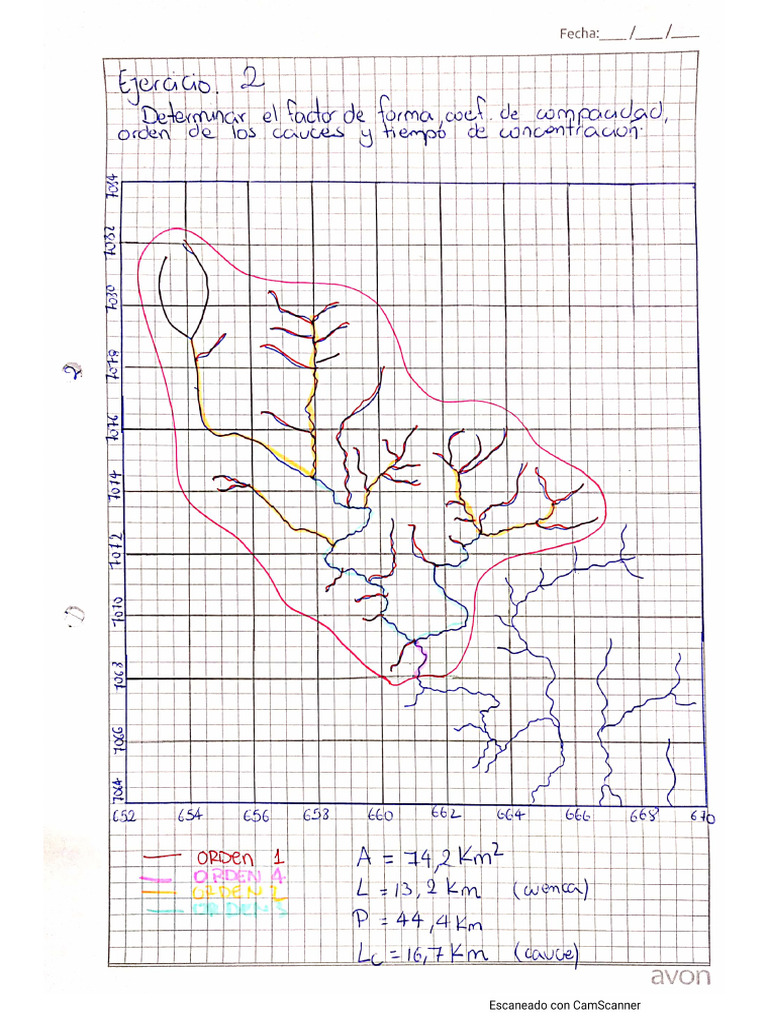 Fecha:___/___/___
Ejercicio. 2
Determinar el factor de forma, coef. de compacidad,
orden de los cauces y tiempo de concentración.
7084
7082
7080
7078
7076
7074
7072
7070
7068
7066
7064
652 654 656 658 660 662 664 666 668 670
ORDEN 1
ORDEN 4
ORDEN 2
ORDEN 3
A = 74,2 Km²
L = 13,2 Km (cuenca)
P = 44,4 Km
Lc = 16,7 Km (cauce)
avon
Escaneado con CamScanner